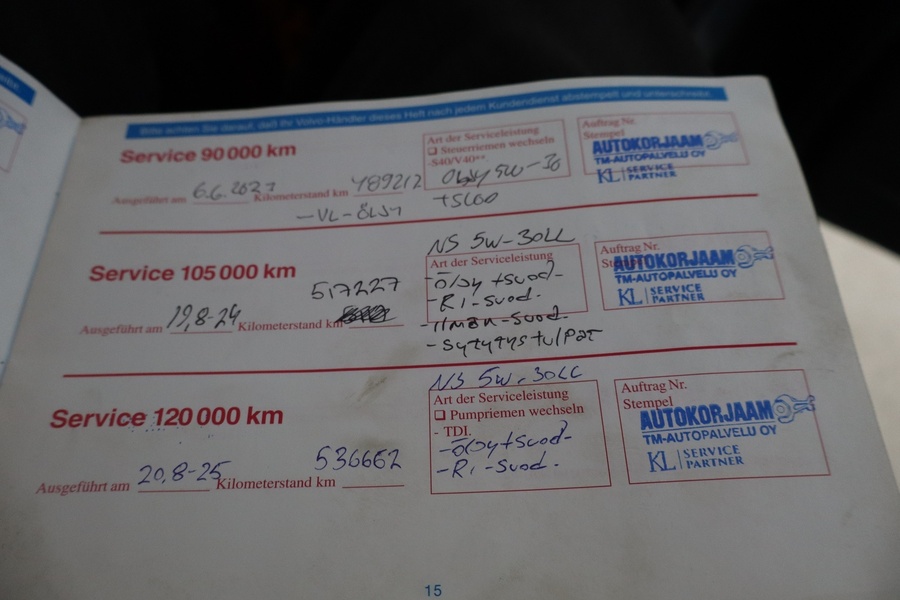 Bitte achten Sie darauf, daß Ihr Volvo-Händler dieses Heft nach jedem Kundendienst abstempelt und unterschreibt.
Service 90 000 km
Art der Serviceleistung
❑ Steuerriemen wechseln
-S40/V40**.
Öljy 5W-30
+Suod
Ausgeführt am 6.6.2023 Kilometerstand km 489212
-VL-ÖLJY
Auftrag Nr.
Stempel
AUTOKORJAAMO
TM-AUTOPALVELU OY
KL SERVICE
PARTNER
Service 105 000 km
NS 5W-30LL
Art der Serviceleistung
-öljy+suod-
-Ri-suod.
-ilman-suod.
-sytytystulpat
Ausgeführt am 19,8-24 Kilometerstand km
517227
Auftrag Nr.
AUTOKORJAAMO
TM-AUTOPALVELU OY
KL SERVICE
PARTNER
Service 120 000 km
NS 5W-30LL
Art der Serviceleistung
❑ Pumpriemen wechseln
- TDI.
-öljy+suod-
-Ri-suod.
Ausgeführt am 20,8-25 Kilometerstand km 536662
Auftrag Nr.
Stempel
AUTOKORJAAMO
TM-AUTOPALVELU OY
KL SERVICE
PARTNER
15